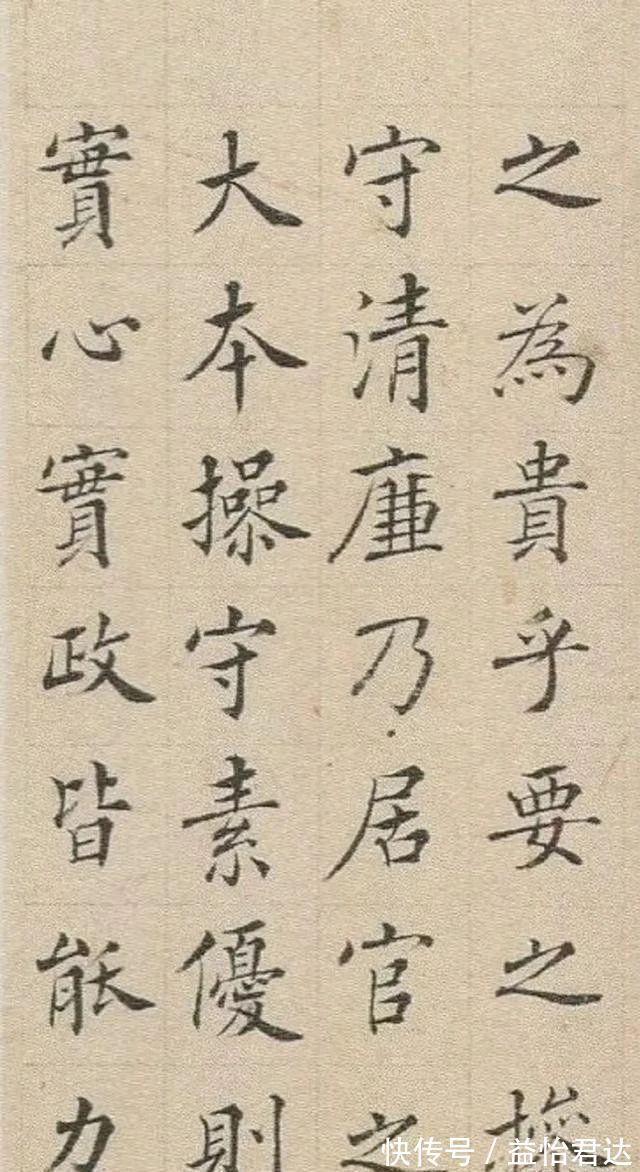 之為貴乎要之操
守清廉乃居官之
大本操守素優則
實心實政皆能力
快传号／益怡君达